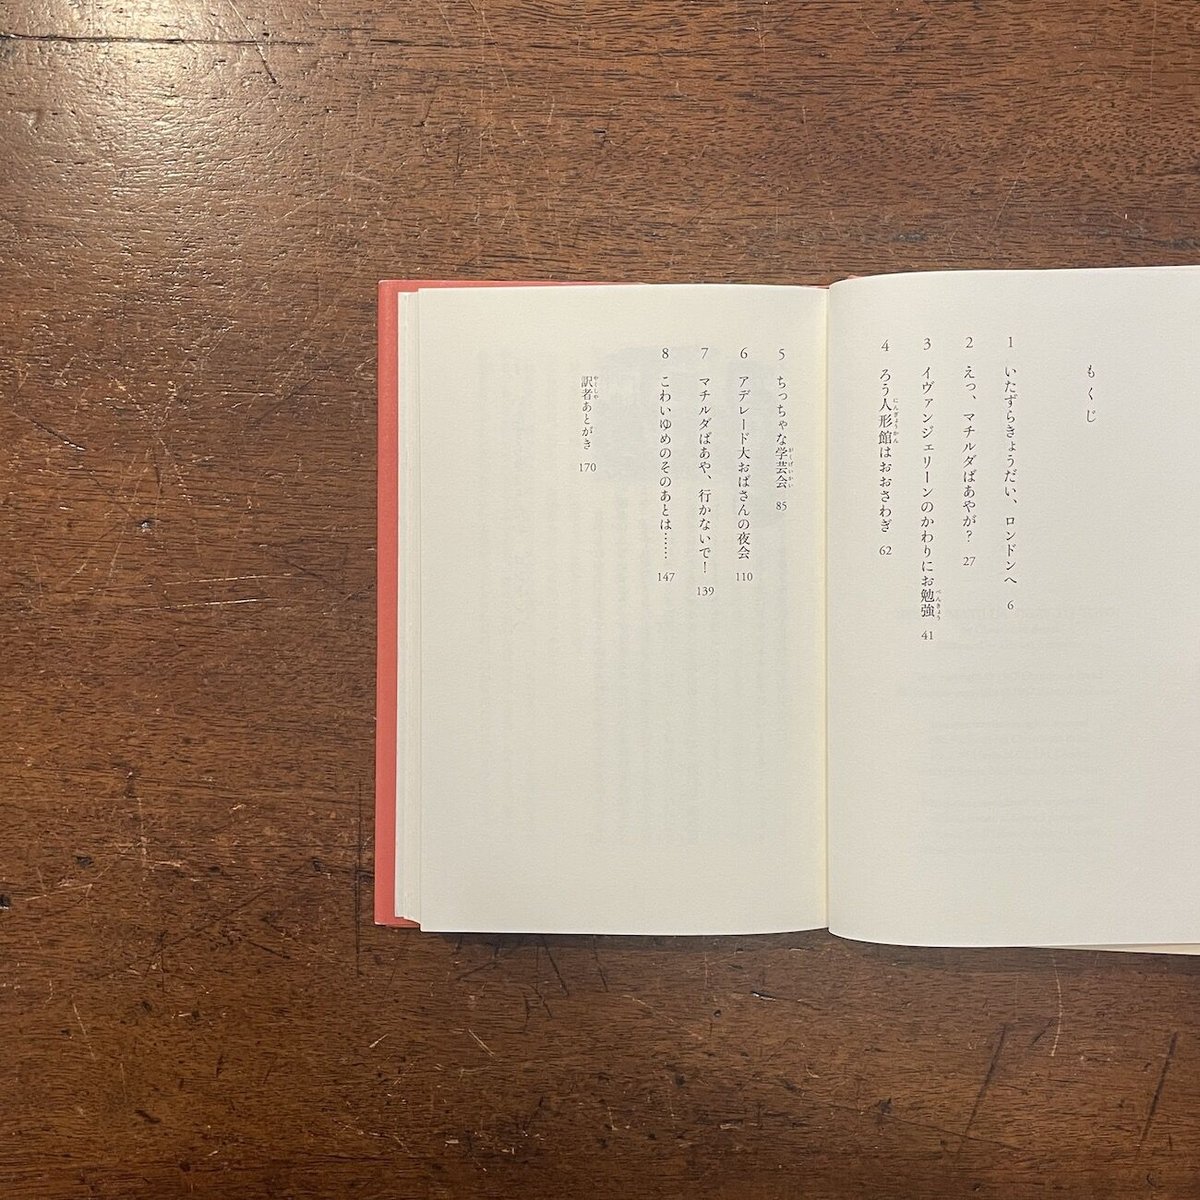 もくじ
1 いたずらきょうだい、ロンドンへ 6
2 えっ、マチルダばあやが? 27
3 イヴァンジェリーンのかわりにお勉強 41
べんきょう
4 ろう人形館はおおさわぎ 62
にんぎょうかん
5 ちっちゃな学芸会 85
がくげいかい
6 アデレード大おばさんの夜会 110
7 マチルダばあや、行かないで! 139
8 こわいゆめのそのあとは…… 147
訳者あとがき 170
やくしゃ